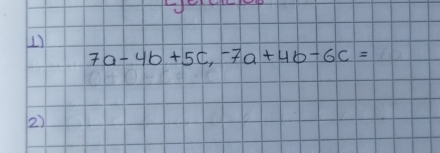 Ejercicios
1)
7a-4b+5c, -7a+4b-6c=
2)